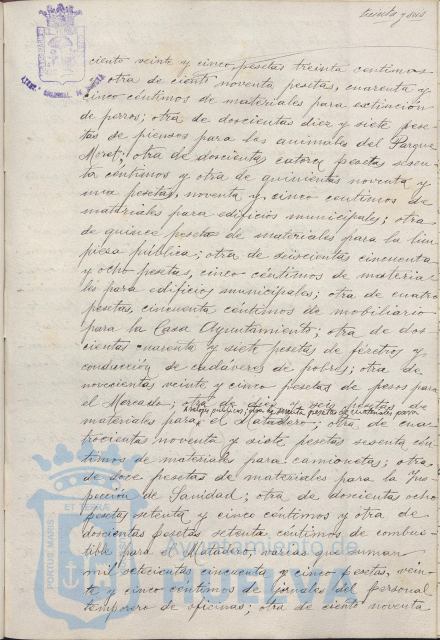 treinta y seis
ciento veinte y cinco pesetas treinta centimos
otra de ciento noventa pesetas, cuarenta y
cinco céntimos de materiales para extinción
de perros; otra de doscientas diez y siete pese-
tas de piensos para los animales del Parque
Moret; otra de doscientas catorce pesetas sesen-
ta céntimos y otra de quinientas noventa y
una pesetas, noventa y cinco centimos de
materiales para edificios municipales; otra
de quince pesetas de materiales para la lim-
piesa pública; otra de seiscientas cincuenta
y ocho pesetas, cinco céntimos de materia-
les para edificios municipales; otra de cuatro
pesetas, cincuenta céntimos de mobiliario
para la Casa Ayuntamiento; otra de dos-
cientas cuarenta y siete pesetas de féretros y
conducción de cadaveres de pobres; otra de
novecientas veinte y cinco pesetas de pesos para
el Mercado; otra de diez y seis pesetas de
relojes públicos; otra de sesenta pesetas de materiales para
materiales para el Matadero; otra de cua-
trocientas noventa y siete pesetas sesenta cén-
timos de materiales para camionetas; otra
de doce pesetas de materiales para la Ins-
pección de Sanidad; otra de doscientas ocho
pesetas setenta y cinco céntimos y otra de
doscientas pesetas setenta céntimos de combus-
tible para el Matadero, varias que suman
mil setecientas cincuenta y cinco pesetas, vein-
te y cinco céntimos de jornales del personal
temporero de oficinas; otra de ciento noventa
PORTUS MARIS
ET TERRAE
Ayuntamiento de
HUELVA